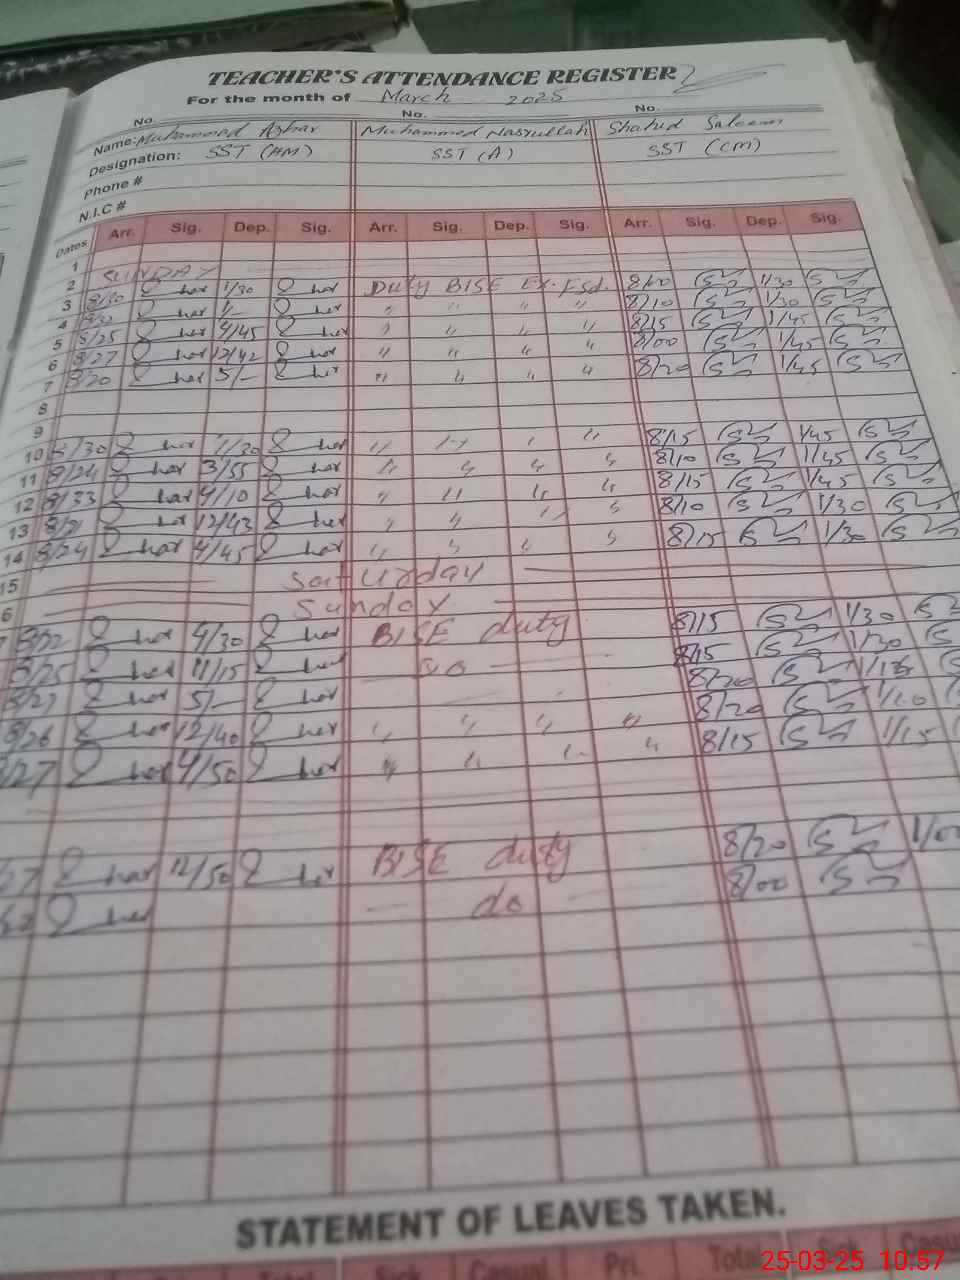 TEACHER'S ATTENDANCE REGISTER
For the month of March 2025
No. No. No.
Name: Muhammad Azhar Muhammad Nasrullah Shahid Saleem
Designation: SST (HM) SST (A) SST (CM)
Phone #
N.I.C #
Dates Arr. Sig. Dep. Sig. Arr. Sig. Dep. Sig. Arr. Sig. Dep. Sig.
1
2 SUNDAY
3 8/30 1/30 Duty BISE Ex. Fsd. 8/00 1/30
4 " " " " 8/10 1/30
5 8/25 4/45 " " " " 8/15 1/45
6 8/27 12/42 " " " " 8/00 1/45
7 8/20 5/- " " " " 8/20 1/45
8
9
10 8/30 1/30 " " " " 8/15 1/45
11 8/24 3/55 " " " " 8/10 1/45
12 8/33 4/10 " " " " 8/15 1/45
13 8/21 12/43 " " " " 8/10 1/30
14 8/24 4/45 " " " " 8/15 1/30
15 Saturday
6 Sunday
7 8/22 4/30 BISE duty 8/15 1/30
8/25 11/15 do 8/15 1/30
8/27 5/- 8/20
8/26 12/40 " " " " 8/20
/27 4/50 " " " " 8/15 1/15
27 12/50 BISE duty 8/20 1/00
do 8/00
STATEMENT OF LEAVES TAKEN.
Sick Casual Pri. Total Sick Casu
25-03-25 10:57